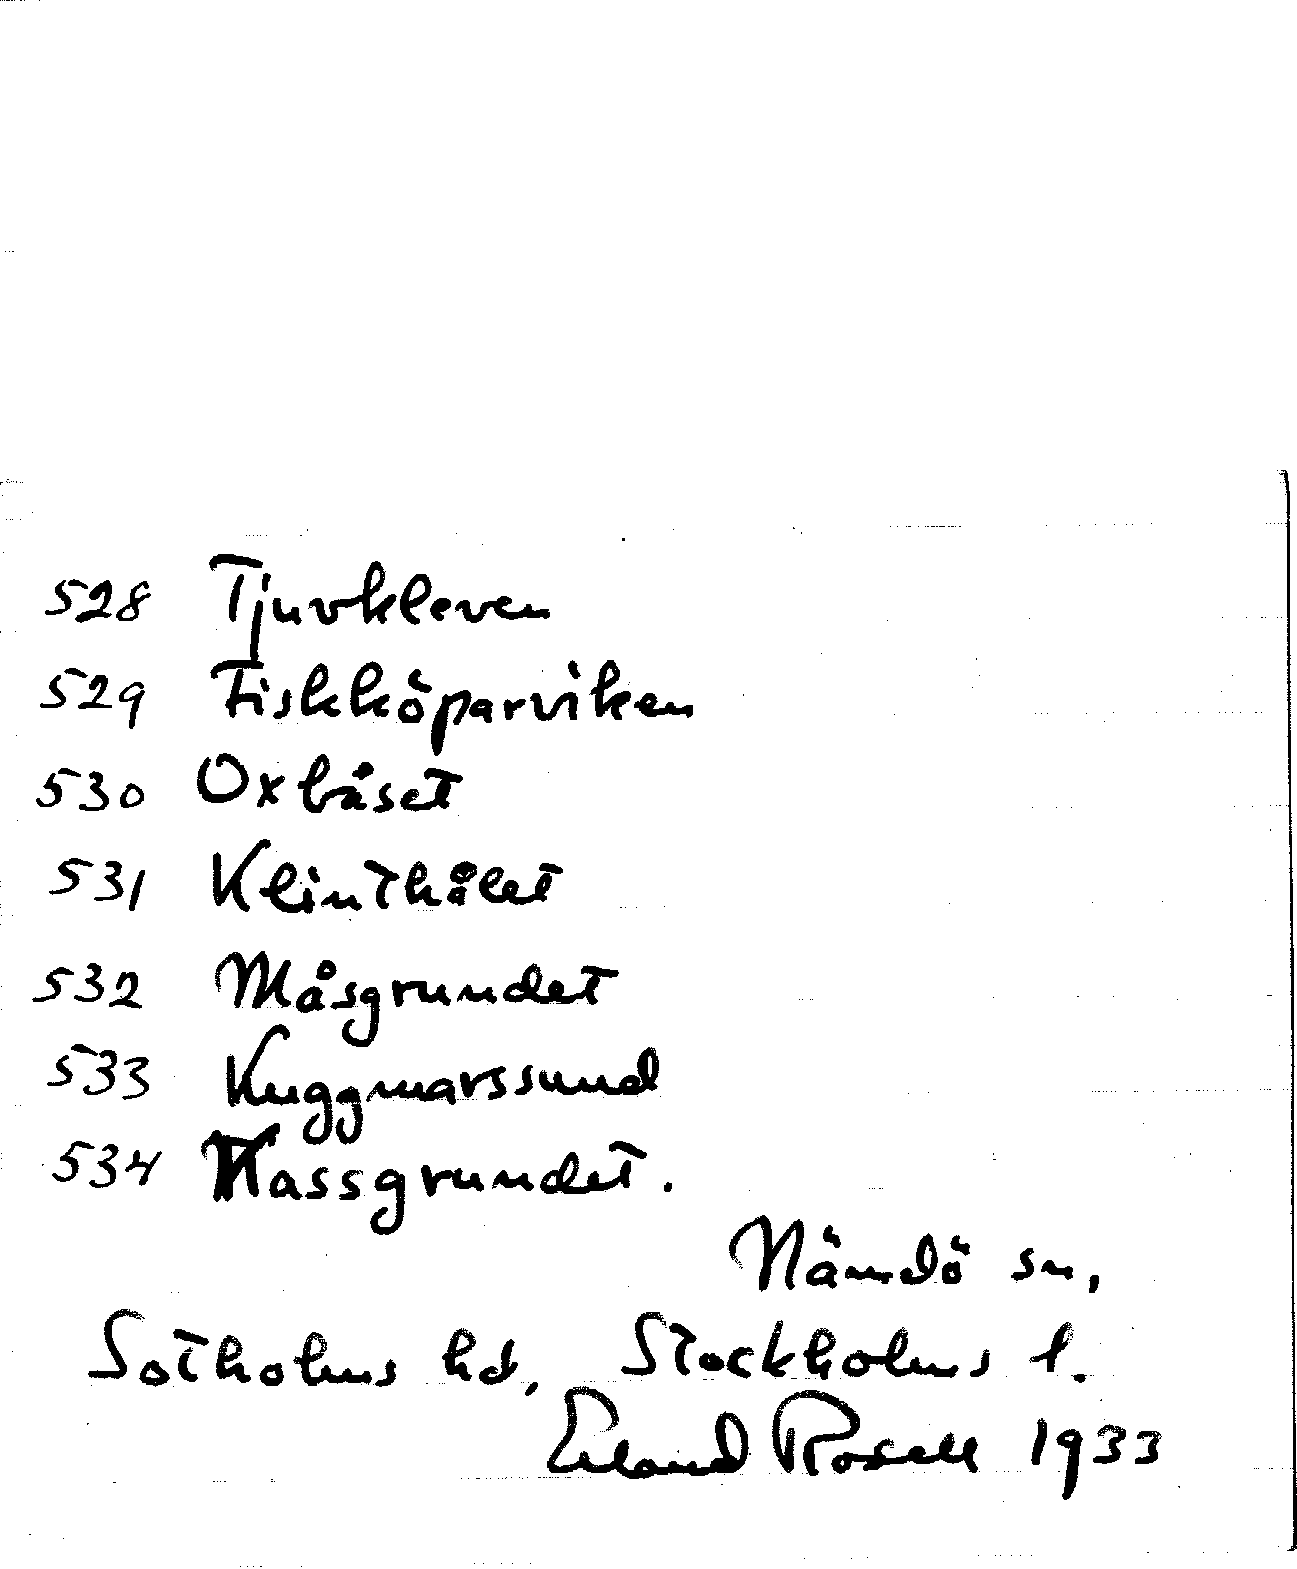 528 Tjuvkleven
529 Fiskköparviken
530 Oxbåset
531 Klinthålet
532 Måsgrundet
533 Kuggmarssund
534 Kassgrundet.
Nämdö sn,
Sotholms hd, Stockholms l.
Erland Rosell 1933